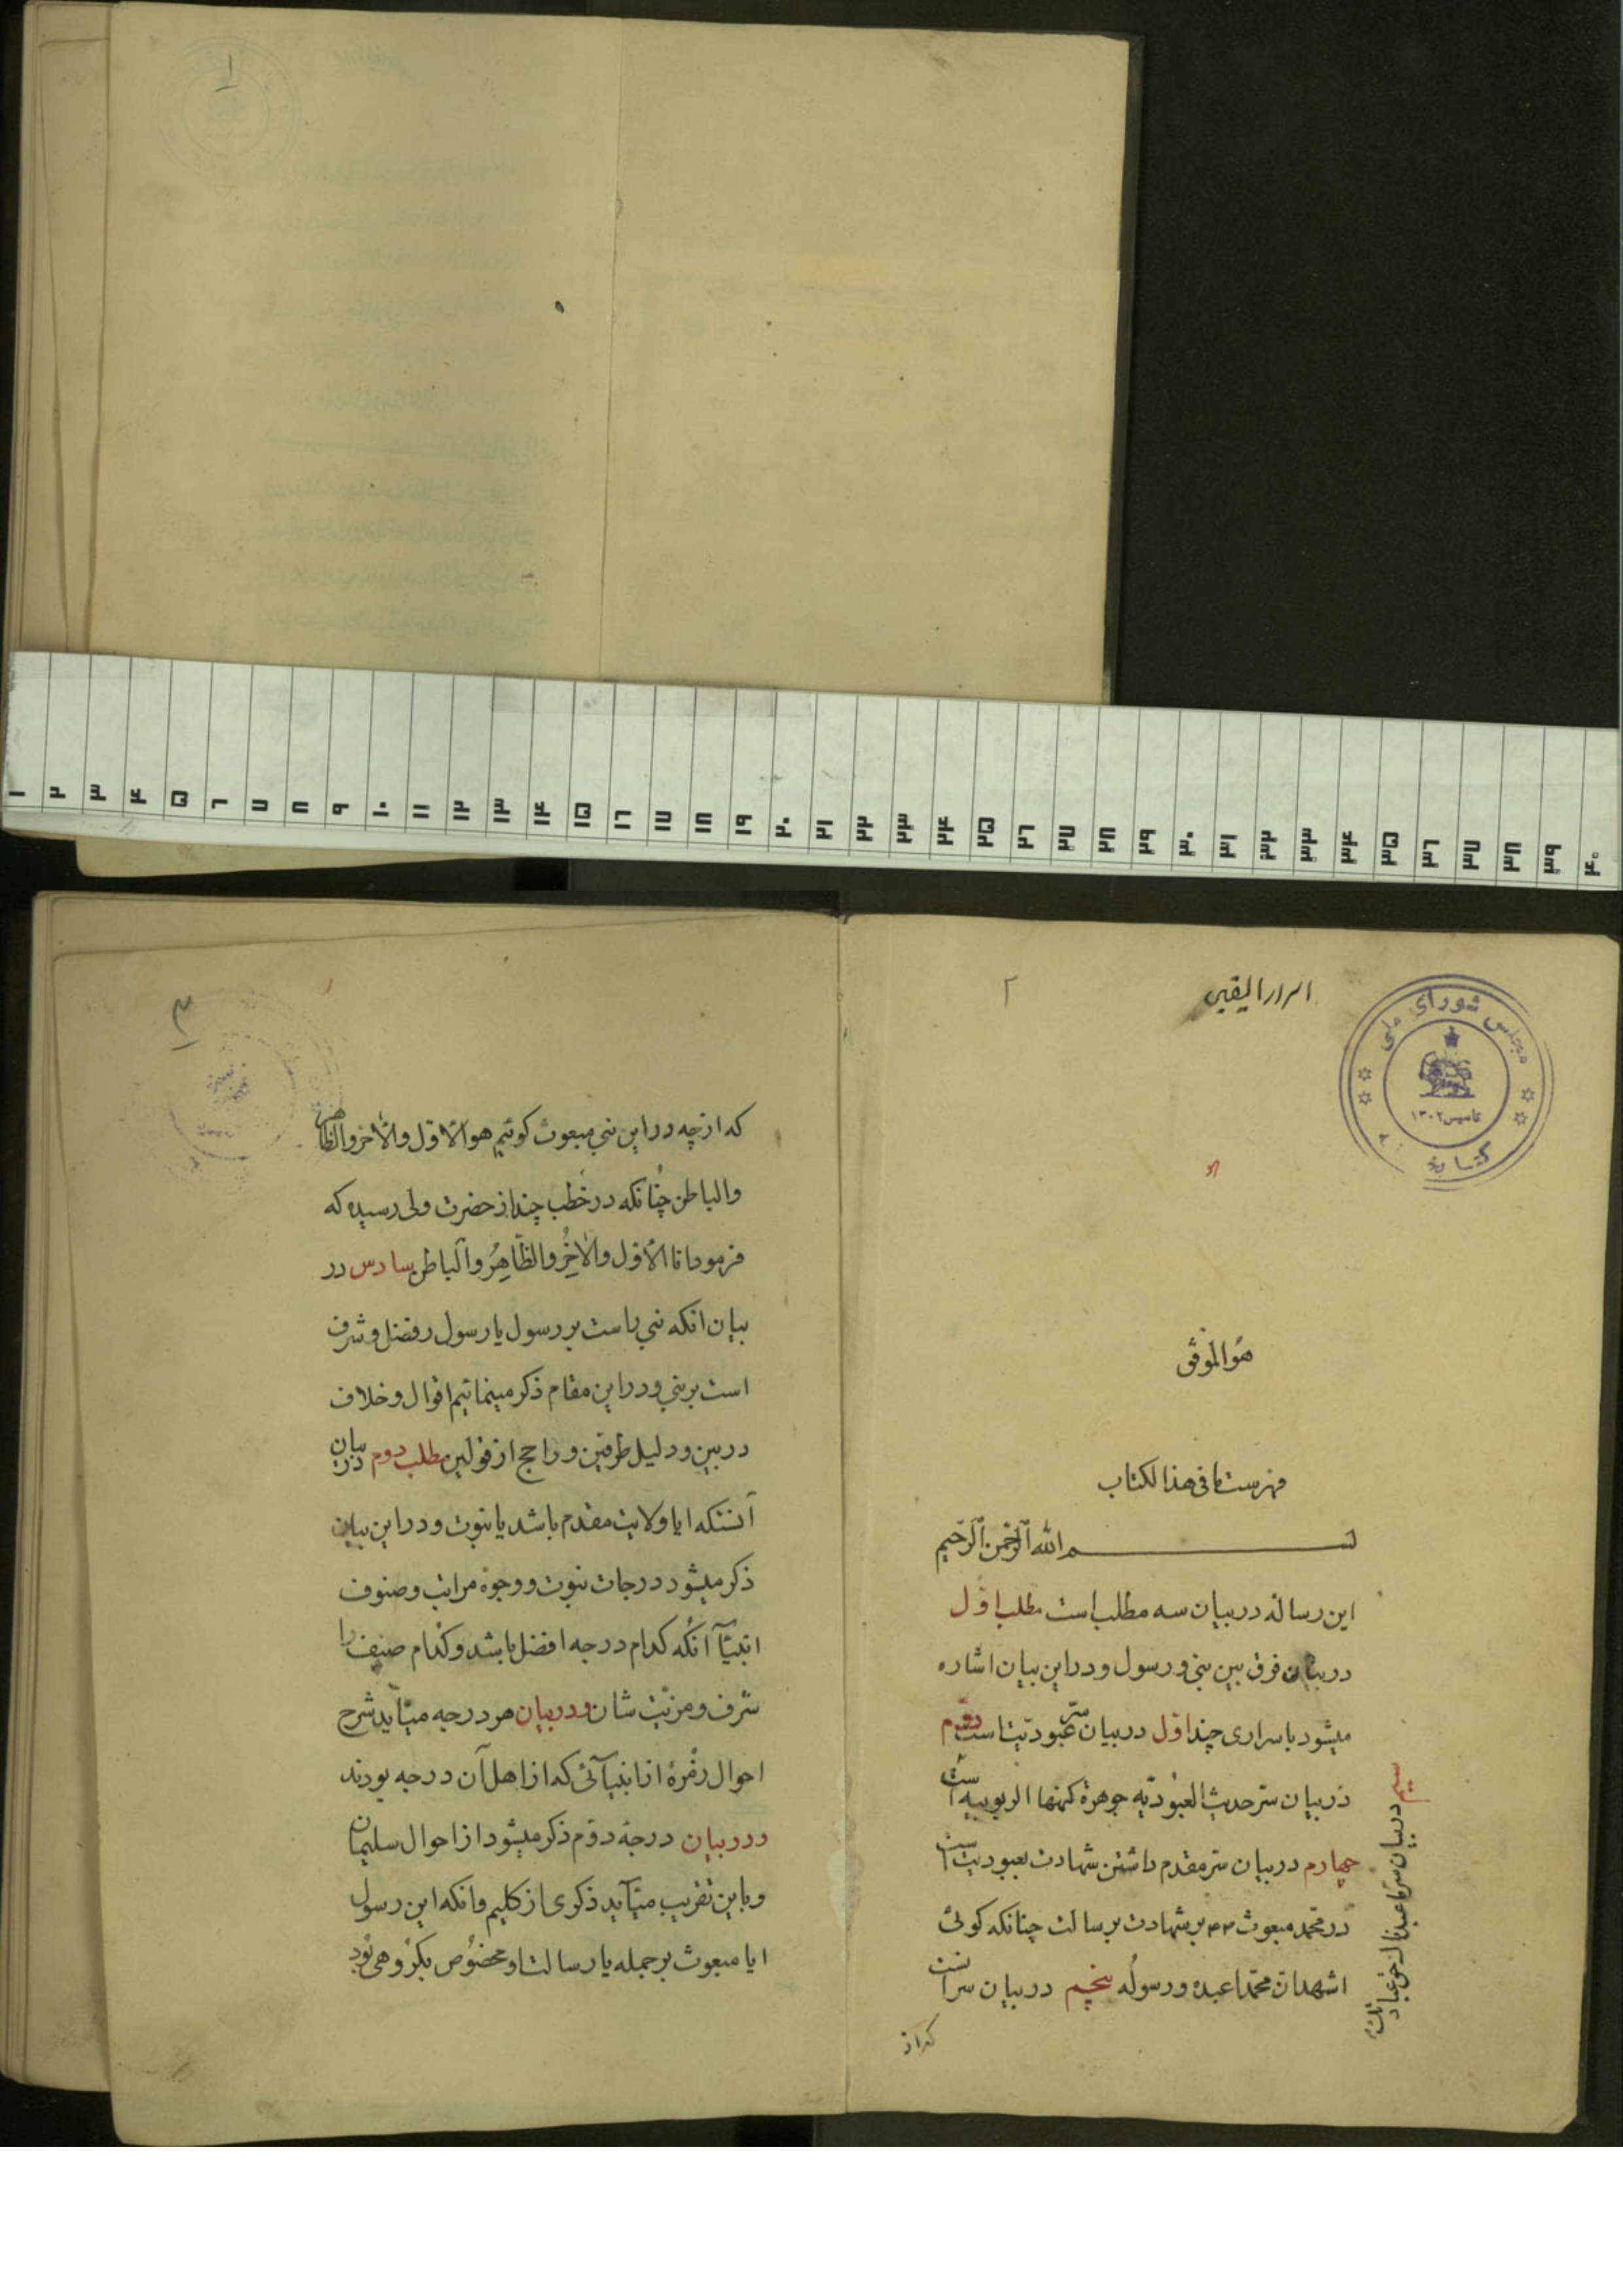 ١
١ ٢ ٣ ۴ ۵ ٦ ٧ ٨ ٩ ١٠ ١١ ١٢ ١٣ ١۴ ١۵ ١٦ ١٧ ١٨ ١٩ ٢٠ ٢١ ٢٢ ٢٣ ٢۴ ٢۵ ٢٦ ٢٧ ٢٨ ٢٩ ٣٠ ٣١ ٣٢ ٣٣ ٣۴ ٣۵ ٣٦ ٣٧ ٣٨ ٣٩ ۴٠
اسرار الیقین
٢
مجلس شورای ملی
تاسیس ١٣٠٢
هو الموفق
فهرست ما فی هذا لکتاب
بسم الله الرحمن الرحیم
این رساله در بیان سه مطلب است مطلب اول
در بیان فرق بین نبی و رسول و در این بیان اشاره
میشود باسراری چند اول در بیان سرّ عبودیتاست دوم
در بیان سرّ حدیث العبودیه جوهرة کنهها الربوبیه است
سیم در بیان سرّ ما عبدناک حق عبادتک
چهارم در بیان سرّ مقدم داشتن شهادت بعبودیت است
در محمد مبعوث بر شهادت برسالت چنانکه کوئی
اشهد ان محمدا عبده و رسوله پنجم در بیان سر انست
که از
٣
که از چه در این نبی مبعوث کوئیم هو الاول والاخر والظاهر
والباطن چنانکه در خطب چند از حضرت ولی رسیده که
فرمود انا الاول والاخر والظاهر والباطن سادس در
بیان انکه نبی راست بر رسول یا رسول را فضل و شرف
است بر نبی و در این مقام ذکر مینمائیم اقوال و خلاف
در بین و دلیل طرفین و راجح از قولین مطلب دوم در بیان
آنستکه ایا ولایت مقدم باشد یا نبوت و در این بیان
ذکر میشود درجات نبوت و وجوه مراتب و صنوف
انبیا آنکه کدام درجه افضل باشد و کدام صنف را
شرف و مزیت شان و در بیان هر درجه میآید شرح
احوال زمرۀ از انبیآئی که از اهل آن درجه بودند
و در بیان درجه دوم ذکر میشود از احوال سلیمان
و باین تقریب میآید ذکری از کلیم و انکه این رسول
ایا مبعوث بر جمله یا رسالت او مخصوص بکروهی بود